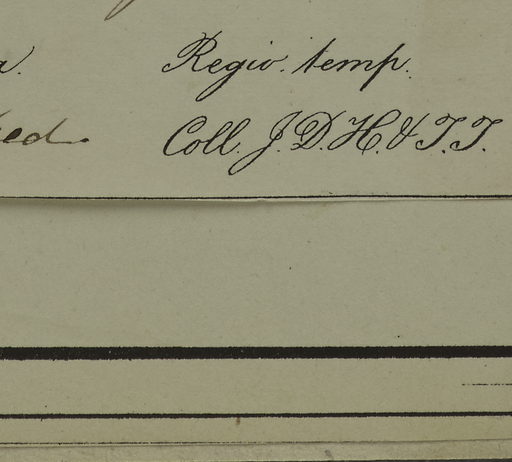 a. Regio. temp.
ed. Coll. J. D. H. & T. T.